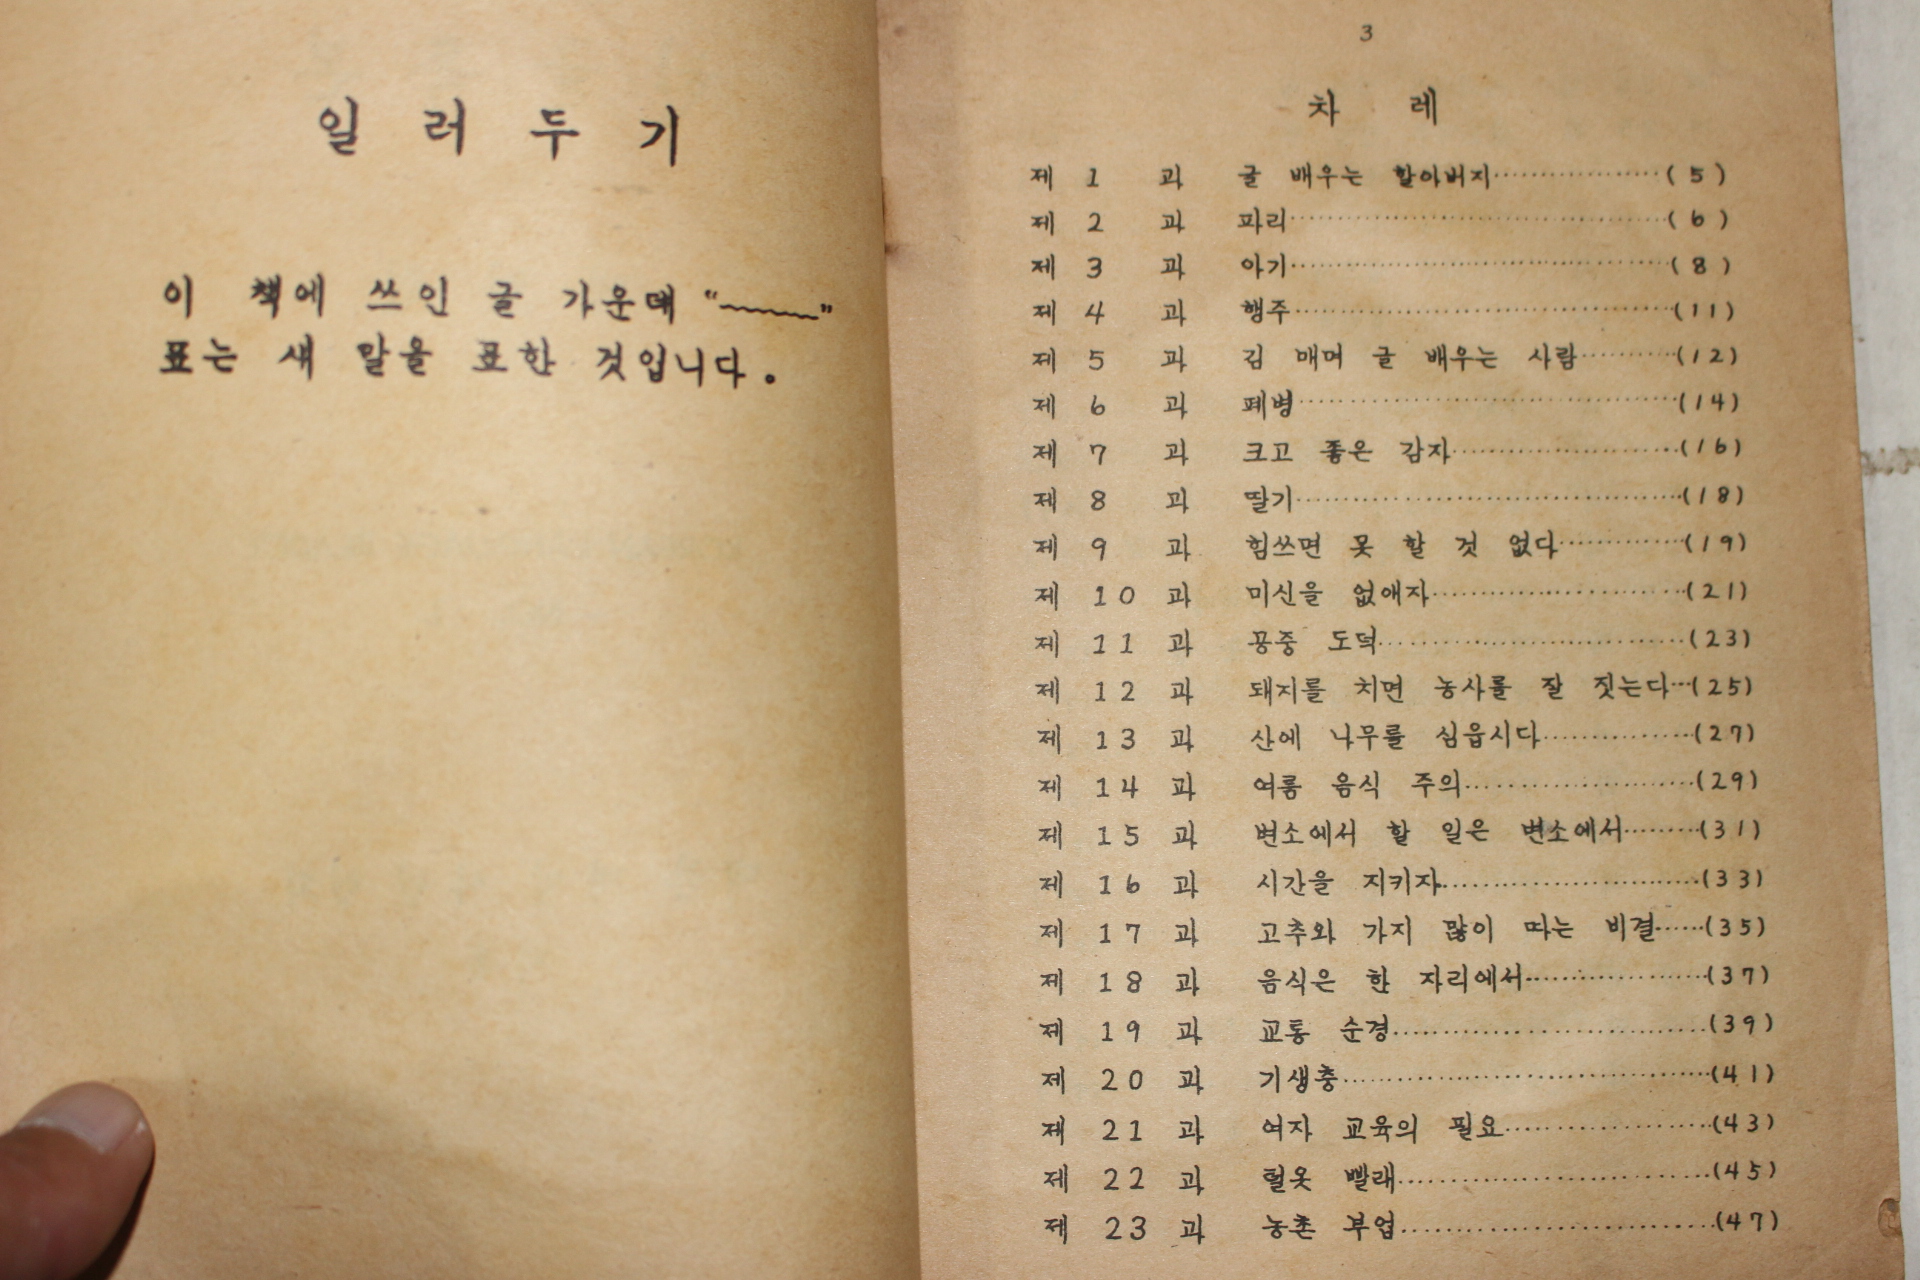 일 러 두 기
이 책에 쓰인 글 가운데 “﹏﹏﹏”
표는 새 말을 표한 것입니다.
3
차 례
제 1 과 글 배우는 할아버지………………(5)
제 2 과 파리………………(6)
제 3 과 아기………………(8)
제 4 과 행주………………(11)
제 5 과 김 매며 글 배우는 사람………(12)
제 6 과 폐병………………(14)
제 7 과 크고 좋은 감자………………(16)
제 8 과 딸기………………(18)
제 9 과 힘쓰면 못 할 것 없다…………(19)
제 10 과 미신을 없애자………………(21)
제 11 과 공중 도덕………………(23)
제 12 과 돼지를 치면 농사를 잘 짓는다…(25)
제 13 과 산에 나무를 심읍시다…………(27)
제 14 과 여름 음식 주의………………(29)
제 15 과 변소에서 할 일은 변소에서……(31)
제 16 과 시간을 지키자………………(33)
제 17 과 고추와 가지 많이 따는 비결……(35)
제 18 과 음식은 한 자리에서……………(37)
제 19 과 교통 순경………………(39)
제 20 과 기생충………………(41)
제 21 과 여자 교육의 필요………………(43)
제 22 과 털옷 빨래………………(45)
제 23 과 농촌 부업………………(47)